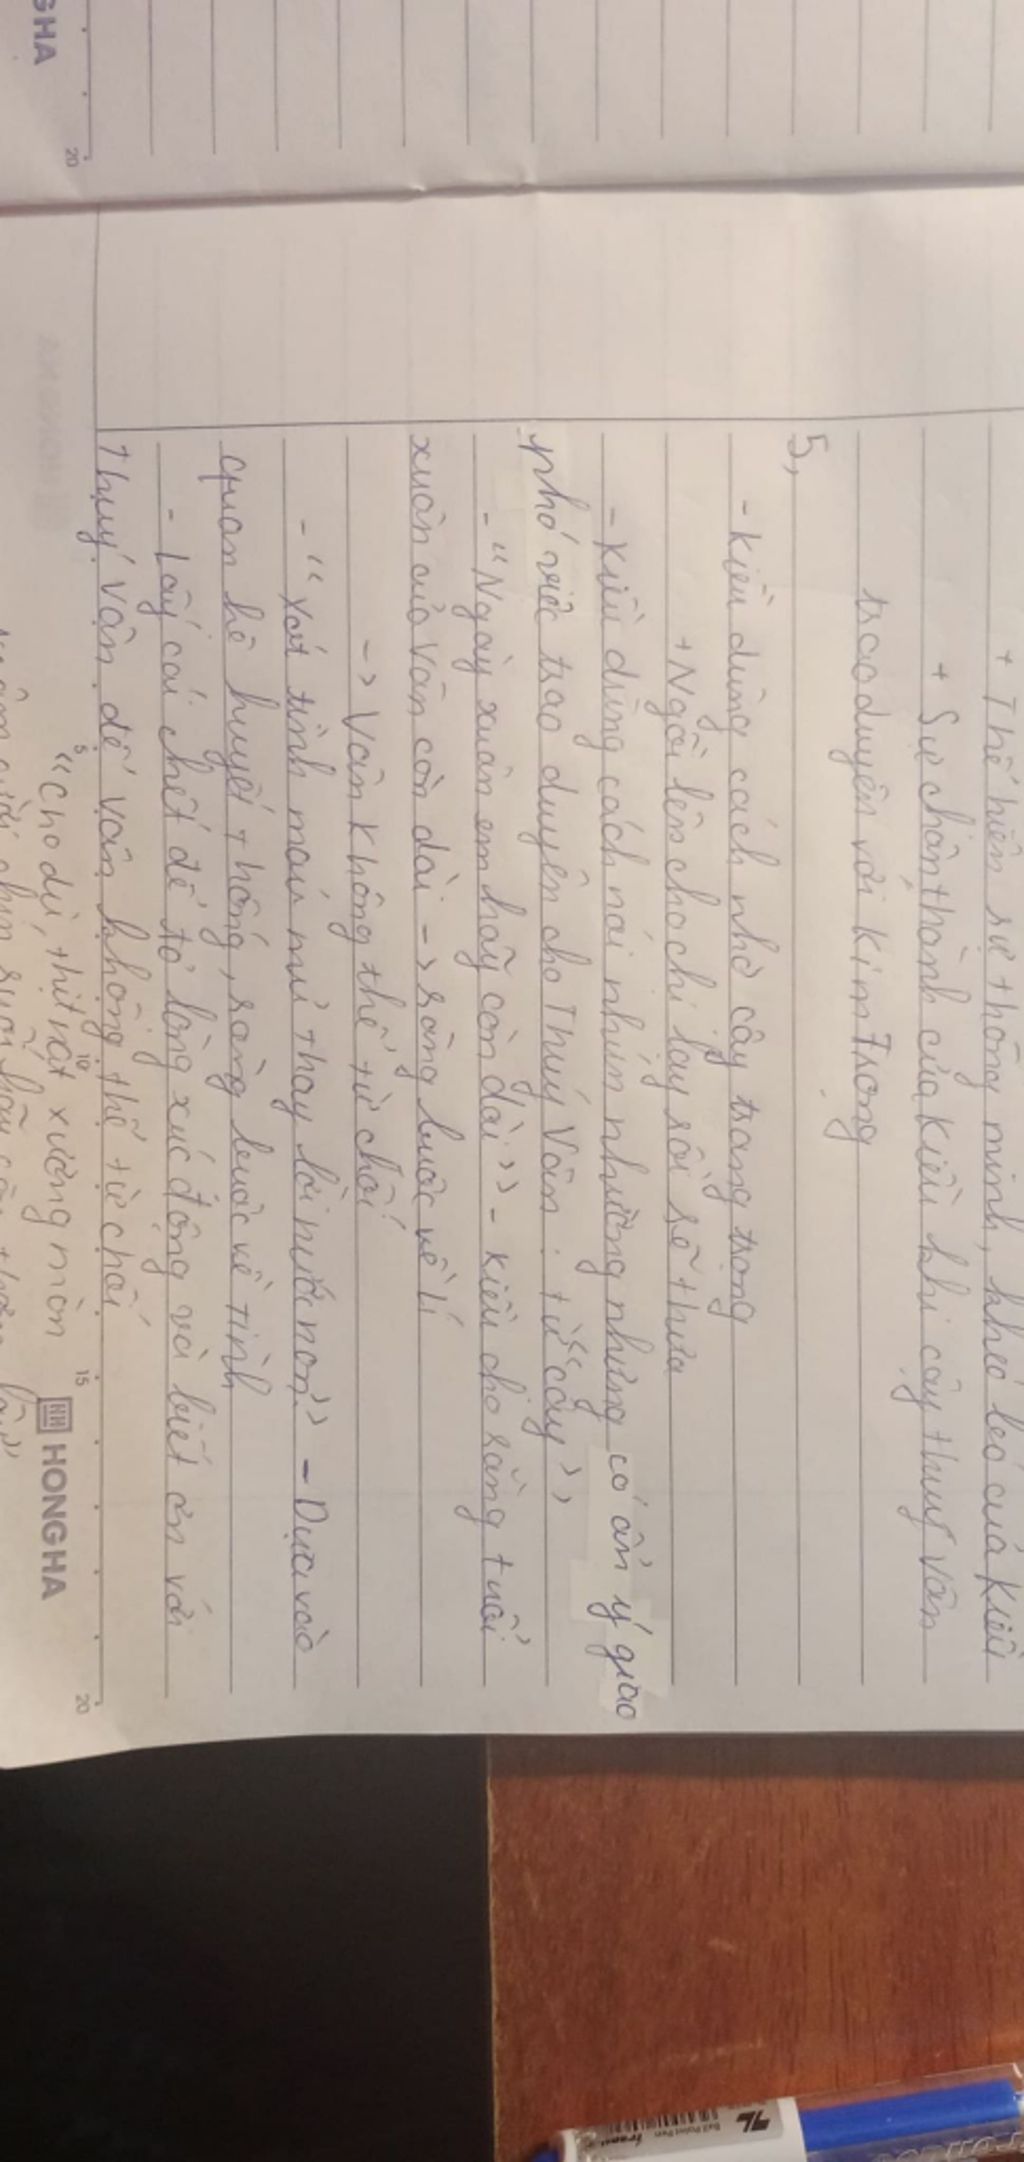 + Thể hiện sự thông minh, khéo léo của Kiều
+ Sự chân thành của Kiều khi cậy thuý Vân
trao duyên với Kim Trọng
5,
- Kiều dùng cách nhờ cậy trang trọng
+ Ngồi lên cho chị lạy rồi sẽ thưa
- Kiều dùng cách nói nhún nhường nhưng có ẩn ý giao
phó việc trao duyên cho Thuý Vân : từ "cậy"
- "Ngày xuân em hãy còn dài" - Kiều cho rằng tuổi
xuân của Vân còn dài -> ràng buộc về lí
-> Vân không thể từ chối
- "Xót tình máu mủ thay lời nước non" - Dựa vào
quan hệ huyết thống, ràng buộc về tình
- Lấy cái chết để tỏ lòng xúc động và biết ơn với
Thuý Vân để Vân không thể từ chối
"Cho dù, thịt nát xương mòn
ngậm cười chín suối hãy còn thơm lây"
5 10 15 20
HONG HA
GHA
20